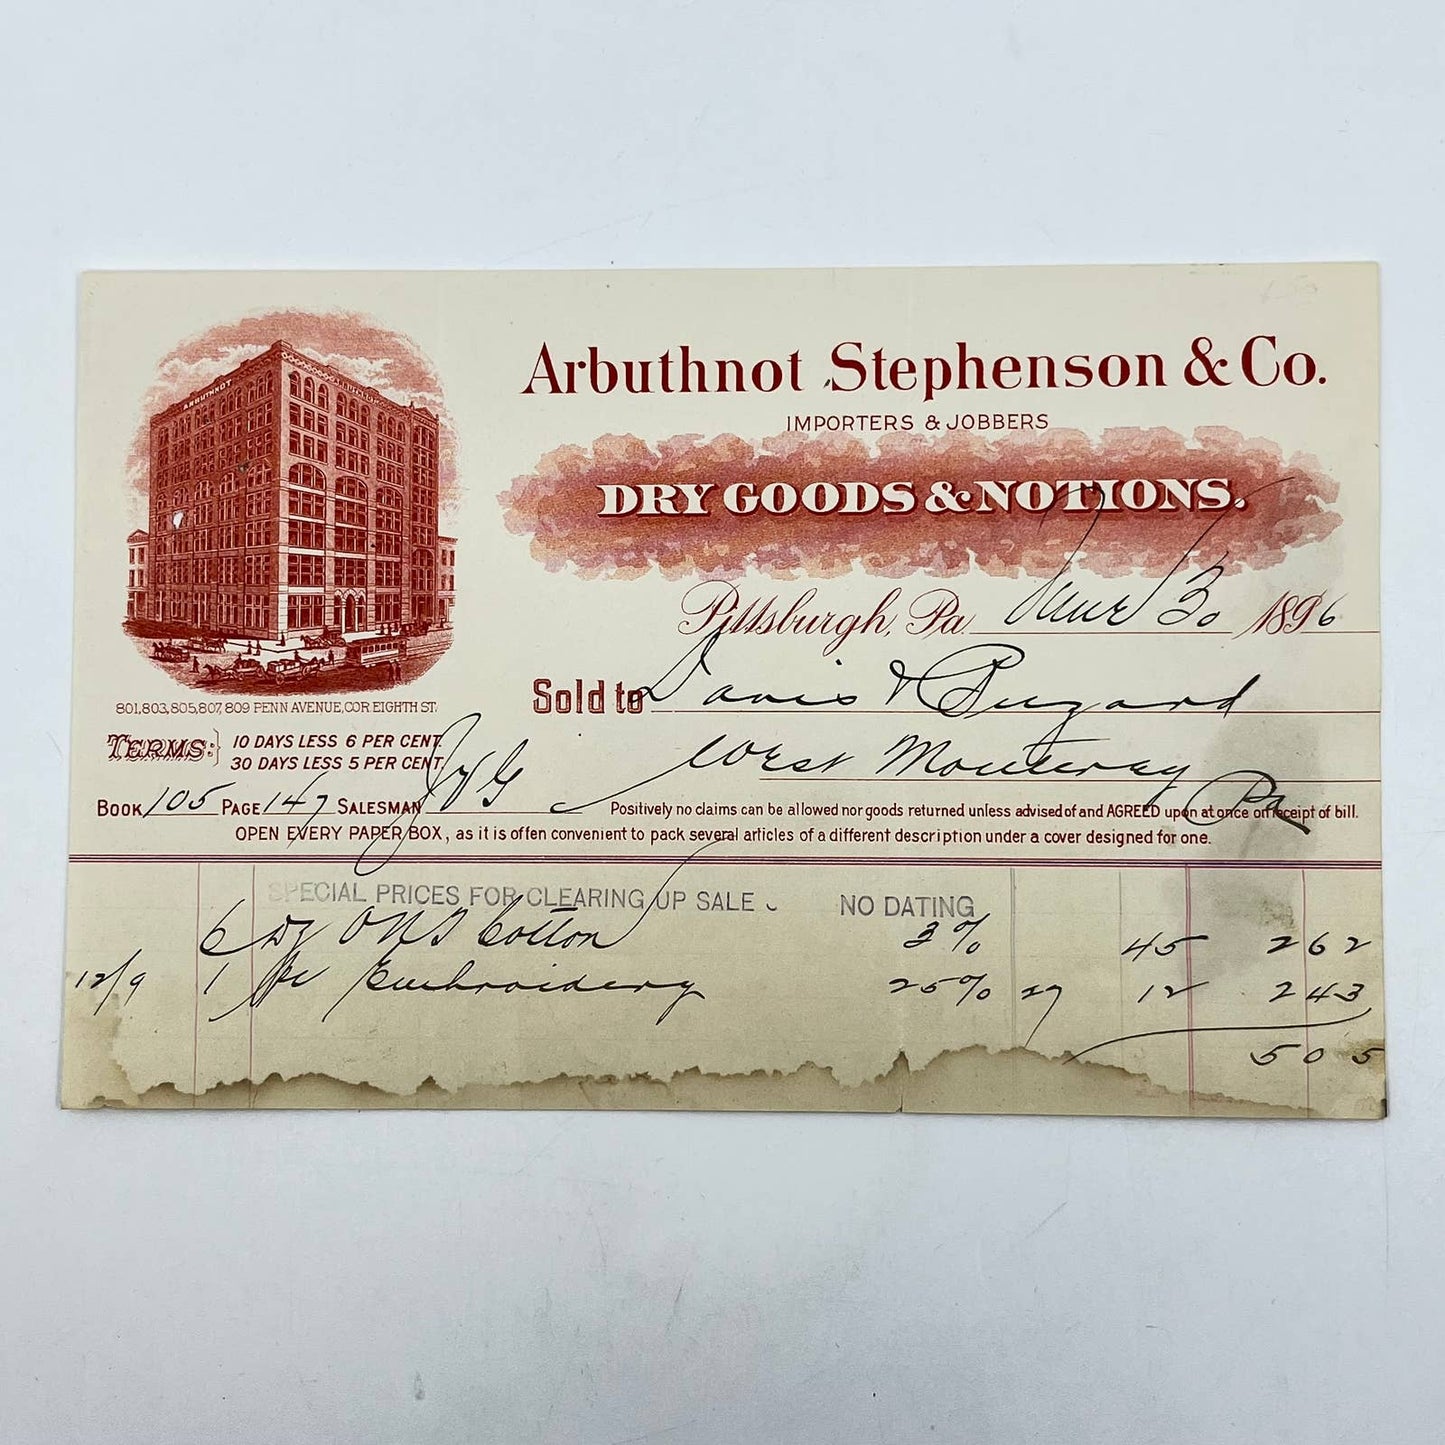 Arbuthnot Stephenson & Co.
IMPORTERS & JOBBERS
DRY GOODS & NOTIONS.
ARBUTHNOT
Pittsburgh, Pa. 30 1896
Sold to Davis &
801, 803, 805, 807, 809 PENN AVENUE, COR. EIGHTH ST.
West Monterey Pa
TERMS: 10 DAYS LESS 6 PER CENT.
30 DAYS LESS 5 PER CENT.
BOOK 105 PAGE 147 SALESMAN
Positively no claims can be allowed nor goods returned unless advised of and AGREED upon at once on receipt of bill.
OPEN EVERY PAPER BOX, as it is often convenient to pack several articles of a different description under a cover designed for one.
SPECIAL PRICES FOR CLEARING UP SALE NO DATING
6 Dz ONT Cotton 3% 45 2 62
12/9 1 Embroidery 25% 27 12 2 43
5 05